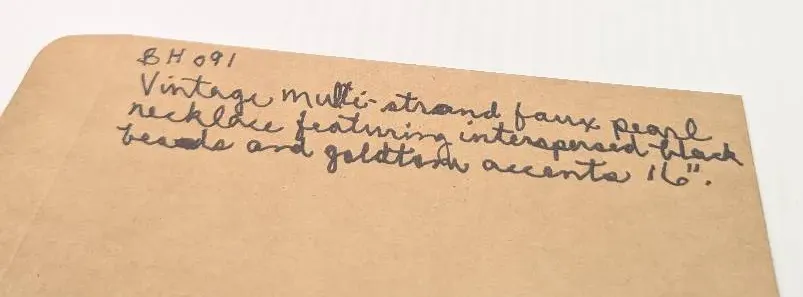 BH 091
Vintage multi-strand faux pearl
necklace featuring interspersed black
beads and goldtone accents 16".